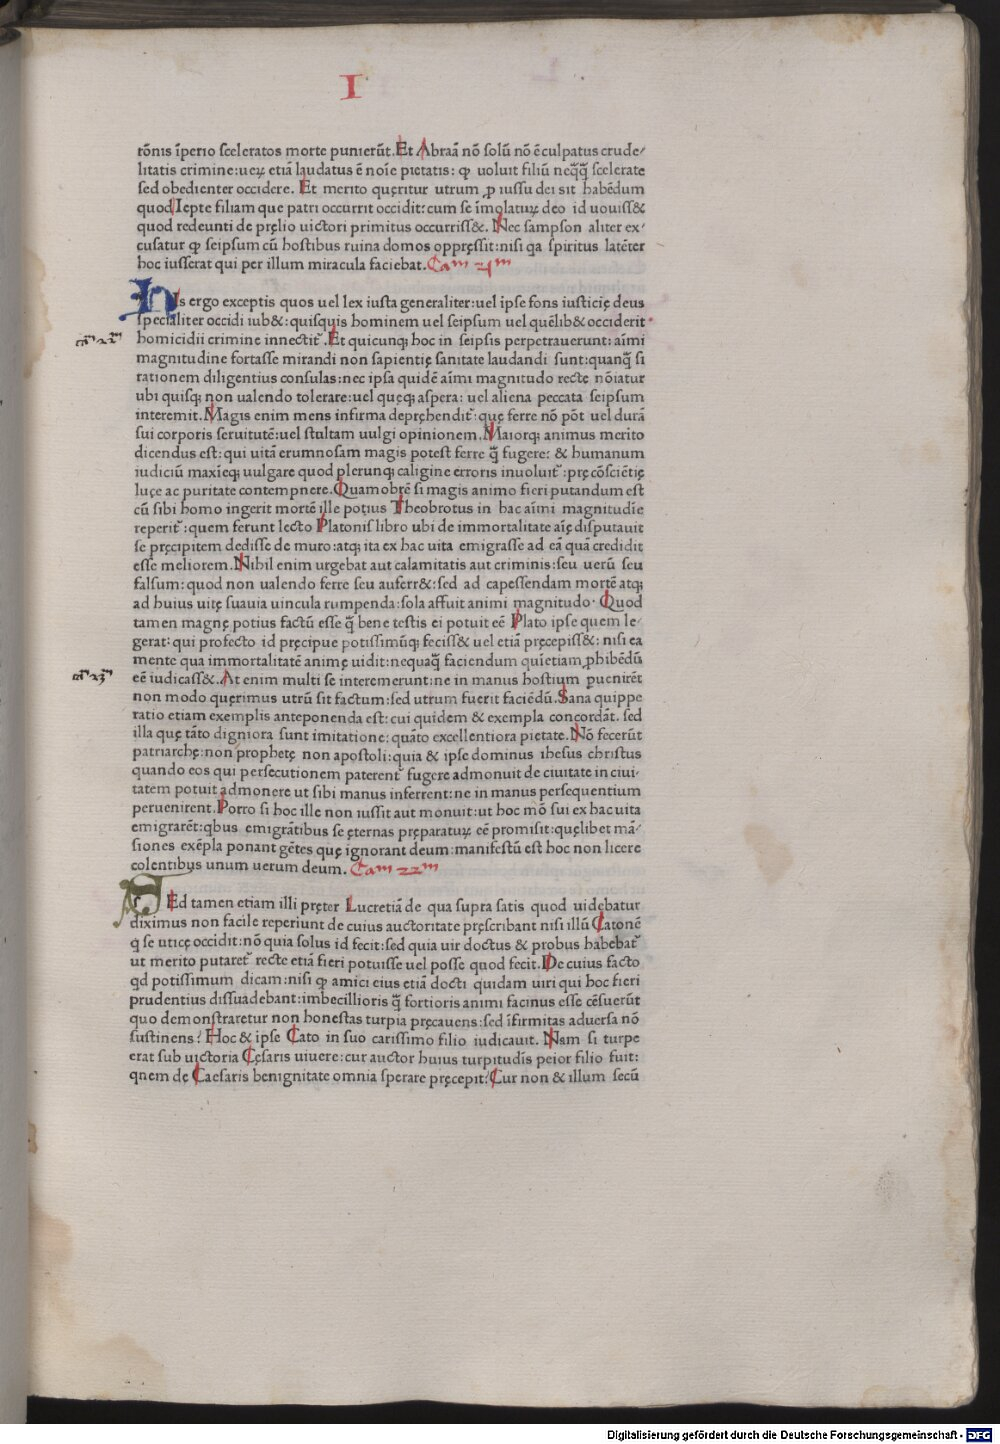 I
tōnis īperio sceleratos morte punierūt. Et Abraā nō solū nō ē culpatus crude-
litatis crimine: ueꝝ etiā laudatus ē noīe pietatis: ꝙ uoluit filiū neq̄q̄ scelerate
sed obedienter occidere. Et merito quęritur utrum ꝓ iussu dei sit habēdum
quod Iepte filiam que patri occurrit occidit: cum se īmolatuꝝ deo id uouiss&
quod redeunti de pręlio uictori primitus occurriss&. Nec sampson aliter ex-
cusatur ꝙ seipsum cū hostibus ruina domos opprȩssit: nisi qa spiritus latēter
hoc iusserat qui per illum miracula faciebat. Cam 21m
HIs ergo exceptis quos uel lex iusta generaliter: uel ipse fons iusticię deus
specialiter occidi iub&: quisquis hominem uel seipsum uel quēlib& occiderit
homicidii crimine innectit̄. Et quicunq; hoc in seipsis perpetrauerunt: aīmi
magnitudine fortasse mirandi non sapientię sanitate laudandi sunt: quanq̄ si
rationem diligentius consulas: nec ipsa quidē aīmi magnitudo recte nōiatur
ubi quisq; non ualendo tolerare: uel quęq; aspera: uel aliena peccata seipsum
interemit. Magis enim mens infirma depręhendit̄: quę ferre nō pōt uel durā
sui corporis seruitutē: uel stultam uulgi opinionem. Maiorq; animus merito
dicendus est: qui uitā erumnosam magis potest ferre q̄ fugere: & humanum
iudiciū maxīeq; uulgare quod plerunq; caligine erroris inuoluit̄: prę cōsciētię
luçe ac puritate contempnere. Quamobrē si magis animo fieri putandum est
cū sibi homo ingerit mortē ille potius Theobrotus in hac aīmi magnitudīe
reperit̄: quem ferunt lecto Platonis libro ubi de immortalitate aīę disputauit
se pręcipitem dedisse de muro: atq; ita ex hac uita emigrasse ad eā quā credidit
esse meliorem. Nihil enim urgebat aut calamitatis aut criminis: seu uerū seu
falsum: quod non ualendo ferre seu auferr&: sed ad capessendam mortē atq;
ad huius uitę suauia uincula rumpenda: sola affuit animi magnitudo. Quod
tamen magnę potius factū esse q̄ bene testis ei potuit eē Plato ipse quem le-
gerat: qui profecto id pręcipue potissimūq; feciss& uel etiā pręcepiss&: nisi ea
mente qua immortalitatē animę uidit: nequaq̄ faciendum quīetiam ꝓhibēdū
eē iudicass&. At enim multi se interemerunt: ne in manus hostium ꝑuenirēt
non modo quęrimus utrū sit factum: sed utrum fuerit faciēdū. Sana quippe
ratio etiam exemplis anteponenda est: cui quidem & exempla concordāt. sed
illa quę tāto digniora sunt imitatione: quāto excellentiora pietate. Nō fecerūt
patriarchę: non prophetę non apostoli: quia & ipse dominus ihesus christus
quando eos qui persecutionem paterent̄ fugere admonuit de ciuitate in ciui-
tatem potuit admonere ut sibi manus inferrent: ne in manus persequentium
peruenirent. Porro si hoc ille non iussit aut monuit: ut hoc mō sui ex hac uita
emigrarēt: qbus emigrātibus se ęternas pręparatuꝝ eē promisit: quęlibet mā-
siones exēpla ponant gētes quę ignorant deum: manifestū est hoc non licere
colentibus unum uerum deum. Cam 22m
SEd tamen etiam illi pręter Lucretiā de qua supra satis quod uidebatur
diximus non facile reperiunt de cuius auctoritate pręscribant nisi illū Catonē
q̄ se uticę occidit: nō quia solus id fecit: sed quia uir doctus & probus habebat̄
ut merito putaret̄ recte etiā fieri potuisse uel posse quod fecit. De cuius facto
qd potissimum dicam: nisi ꝙ amici eius etiā docti quidam uiri qui hoc fieri
prudentius dissuadebant: imbecillioris q̄ fortioris animi facinus esse cēsuerūt
quo demonstraretur non honestas turpia pręcauens: sed īfirmitas aduersa nō
sustinens? Hoc & ipse Cato in suo carissimo filio iudicauit. Nam si turpe
erat sub uictoria Cęsaris uiuere: cur auctor huius turpitudīs peior filio fuit:
qnem dę Caesaris benignitate omnia sperare pręcepit? Cur non & illum secū
Digitalisierung gefördert durch die Deutsche Forschungsgemeinschaft - DFG